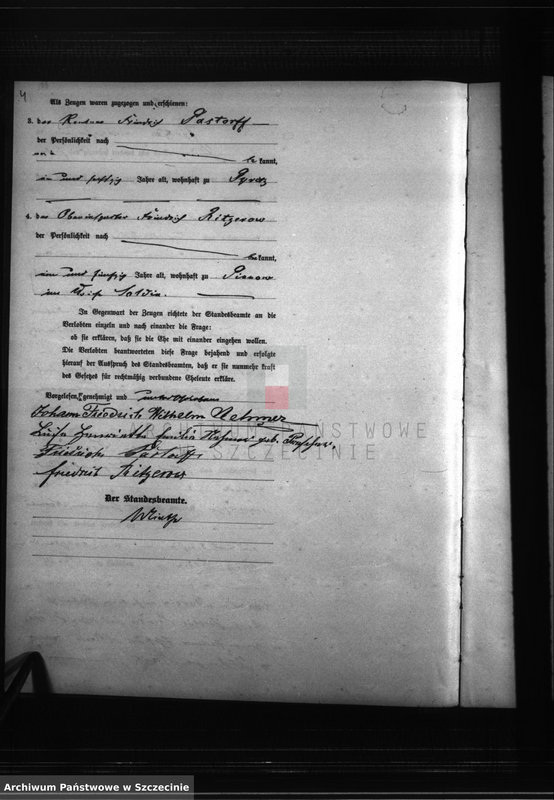 4
Als Zeugen waren zugezogen und erschienen:
3. der Rentner Friedrich Pastorff
der Persönlichkeit nach
be kannt,
ein und sechzig Jahre alt, wohnhaft zu Pyritz
4. der Oberinspektor Friedrich Ritzerow
der Persönlichkeit nach
be kannt,
ein und fünfzig Jahre alt, wohnhaft zu
im Kreise Soldin.
In Gegenwart der Zeugen richtete der Standesbeamte an die
Verlobten einzeln und nach einander die Frage:
ob sie erklären, daß sie die Ehe mit einander eingehen wollen.
Die Verlobten beantworteten diese Frage bejahend und erfolgte
hierauf der Ausspruch des Standesbeamten, daß er sie nunmehr kraft
des Gesetzes für rechtmäßig verbundene Eheleute erkläre.
Vorgelesen, genehmigt und unterschrieben
Johann Friedrich Wilhelm
Luise Henriette Emilie geb.
Friedrich Pastorff
Friedrich Ritzerow
Der Standesbeamte.
ARCHIWUM PAŃSTWOWE
W SZCZECINIE
Archiwum Państwowe w Szczecinie